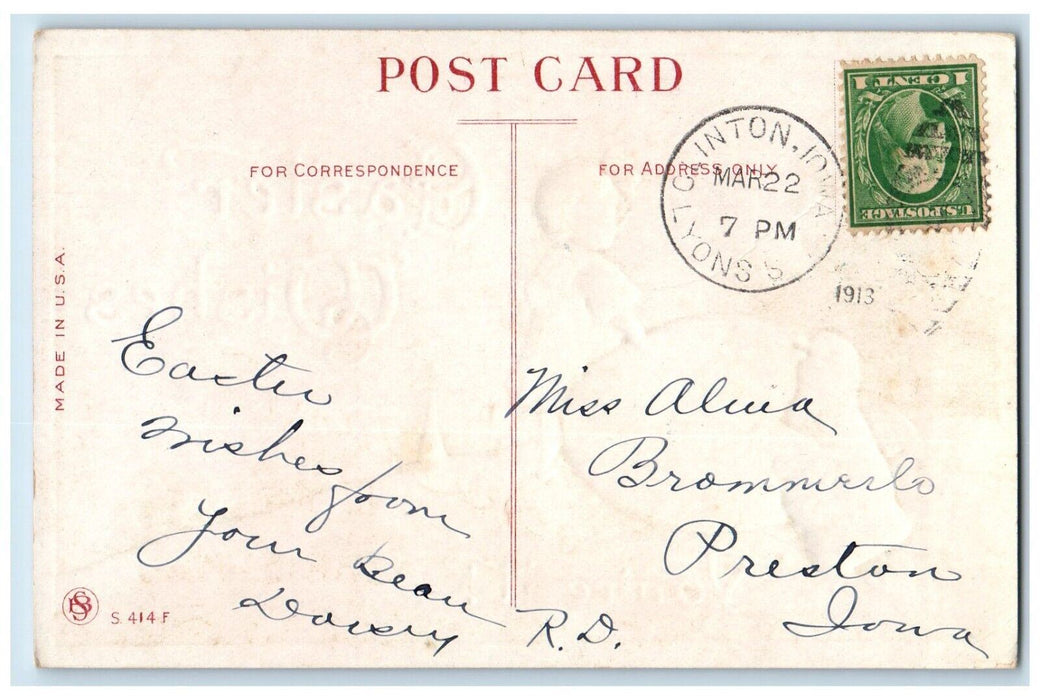 POST CARD
FOR CORRESPONDENCE
FOR ADDRESS ONLY
CLINTON, IOWA
MAR 22
7 PM
LYONS S
1913
1 CENT 1
U.S. POSTAGE
MADE IN U.S.A.
Easter
wishes from
Your Beau
Dorsey
Miss Alvia
Preston
R.D. Iowa
S. 414 F